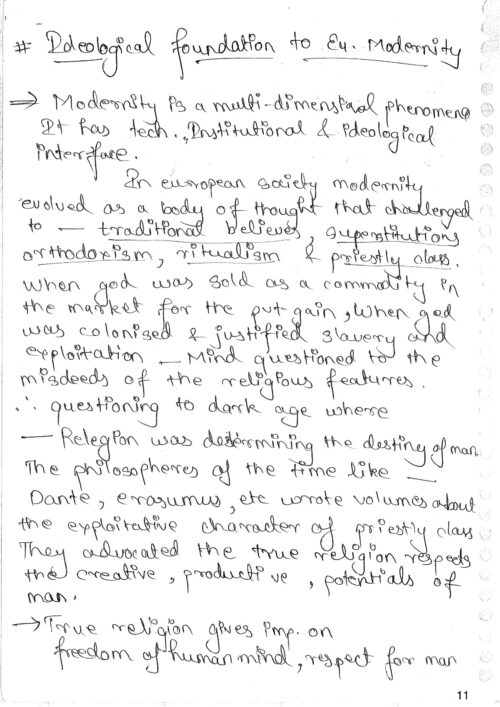 # Ideological foundation to Eu. Modernity
⇒ Modernity is a multi-dimensional phenomena
It has tech., Institutional & ideological
interface.
In european society modernity
evolved as a body of thought that challenged
to — traditional believes, superstitutions
orthodoxism, ritualism & priestly class.
When god was sold as a commodity in
the market for the pvt gain, When god
was colonised & justified slavery and
exploitation — Mind questioned to the
misdeeds of the religious features.
∴ questioning to dark age where
— Relegion was determining the destiny of man
The philosopheres of the time like —
Dante, erasumus, etc wrote volumes about
the exploitative character of priestly class
They advocated the true religion respects
the creative, productive, potentials of
man.
→ True religion gives imp. on
freedom of human mind, respect for man
11